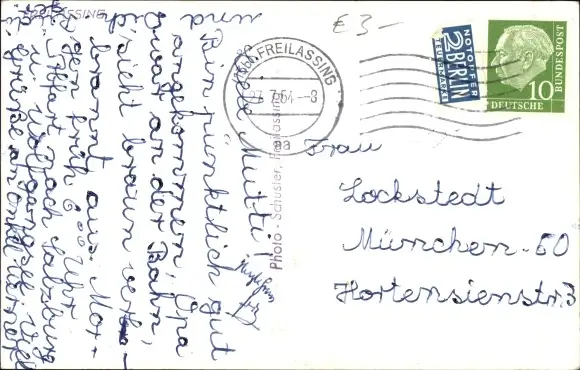 FREILASSING
€ 3-
FREILASSING
27.7.54.-8
aa
NOTOPFER
2 BERLIN
STEUERMARKE
DEUTSCHE
BUNDESPOST
10
Photo - Schuster, Freilassing
Liebe Mutti!
Bin pünktlich gut
angekommen, Opa
war an der Bahn,
sieht braun ver-
brannt aus. Mor-
gen früh 6 00 Uhr
Abfahrt nach Salzburg
u. Wolfgangsee. Viele
Grüße an Onkel Werner
und
Dich
Frau
Lockstedt
München-50
Hortensienstr. 3